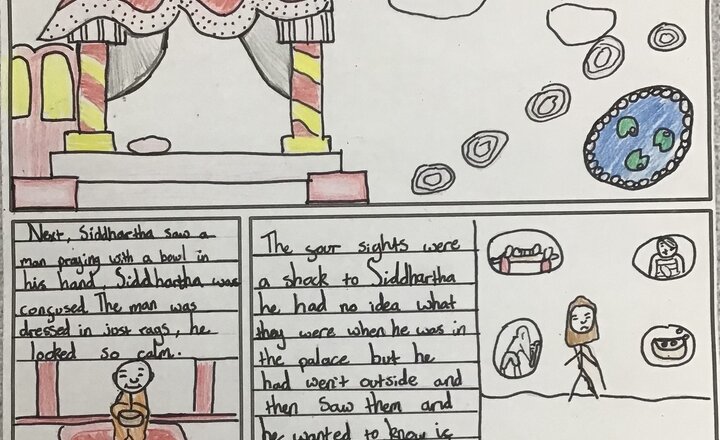 Next, Siddhartha saw a
man praying with a bowl in
his hand, Siddhartha was
confused The man was
dressed in just rags, he
looked so calm.
The four sights were
a shock to Siddhartha
he had no idea what
they were when he was in
the palace but he
had wen't outside and
then saw them and
he wanted to know is